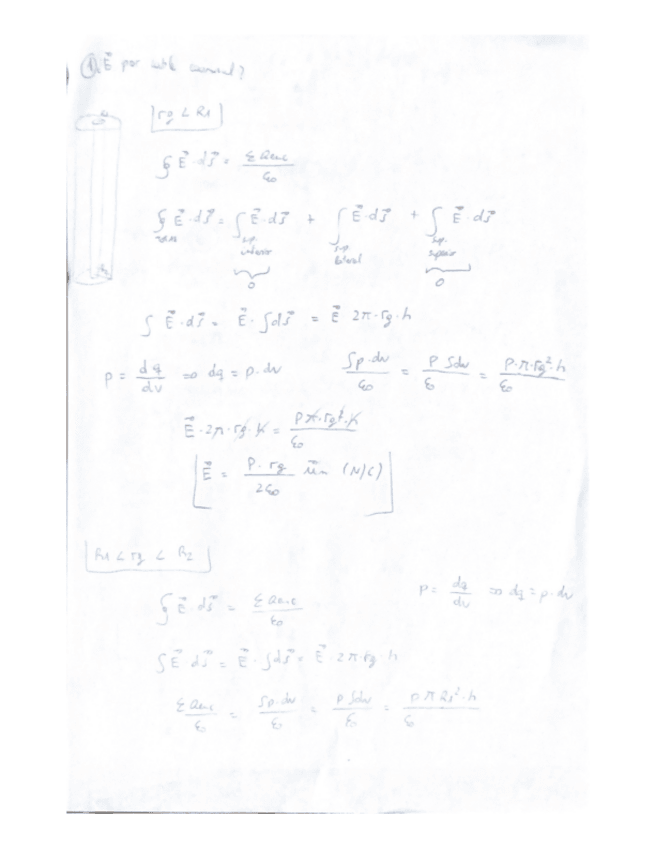 ① Ē por
rg < R1
∮ E⃗·ds⃗ = ΣQenc / ε0
∮ E⃗·ds⃗ = ∫ sup. inferior E⃗·ds⃗ + ∫ sup. lateral E⃗·ds⃗ + ∫ sup. superior E⃗·ds⃗
0 0
∫ E⃗·ds⃗ = E⃗·∫ds⃗ = E⃗ 2π·rg·h
ρ = dq/dv => dq = ρ·dv ∫ρ·dv / ε0 = ρ∫dv / ε0 = ρ·π·rg²·h / ε0
E⃗·2π·rg·h = ρπ·rg²·h / ε0
E⃗ = ρ·rg / 2ε0 (N/C)
R1 < rg < R2
∮ E⃗·ds⃗ = ΣQenc / ε0 ρ = dq/dv => dq = ρ·dv
∫E⃗·ds⃗ = E⃗·∫ds⃗ = E⃗·2π·rg·h
ΣQenc / ε0 = ∫ρ·dv / ε0 = ρ∫dv / ε0 = ρπR1²·h / ε0